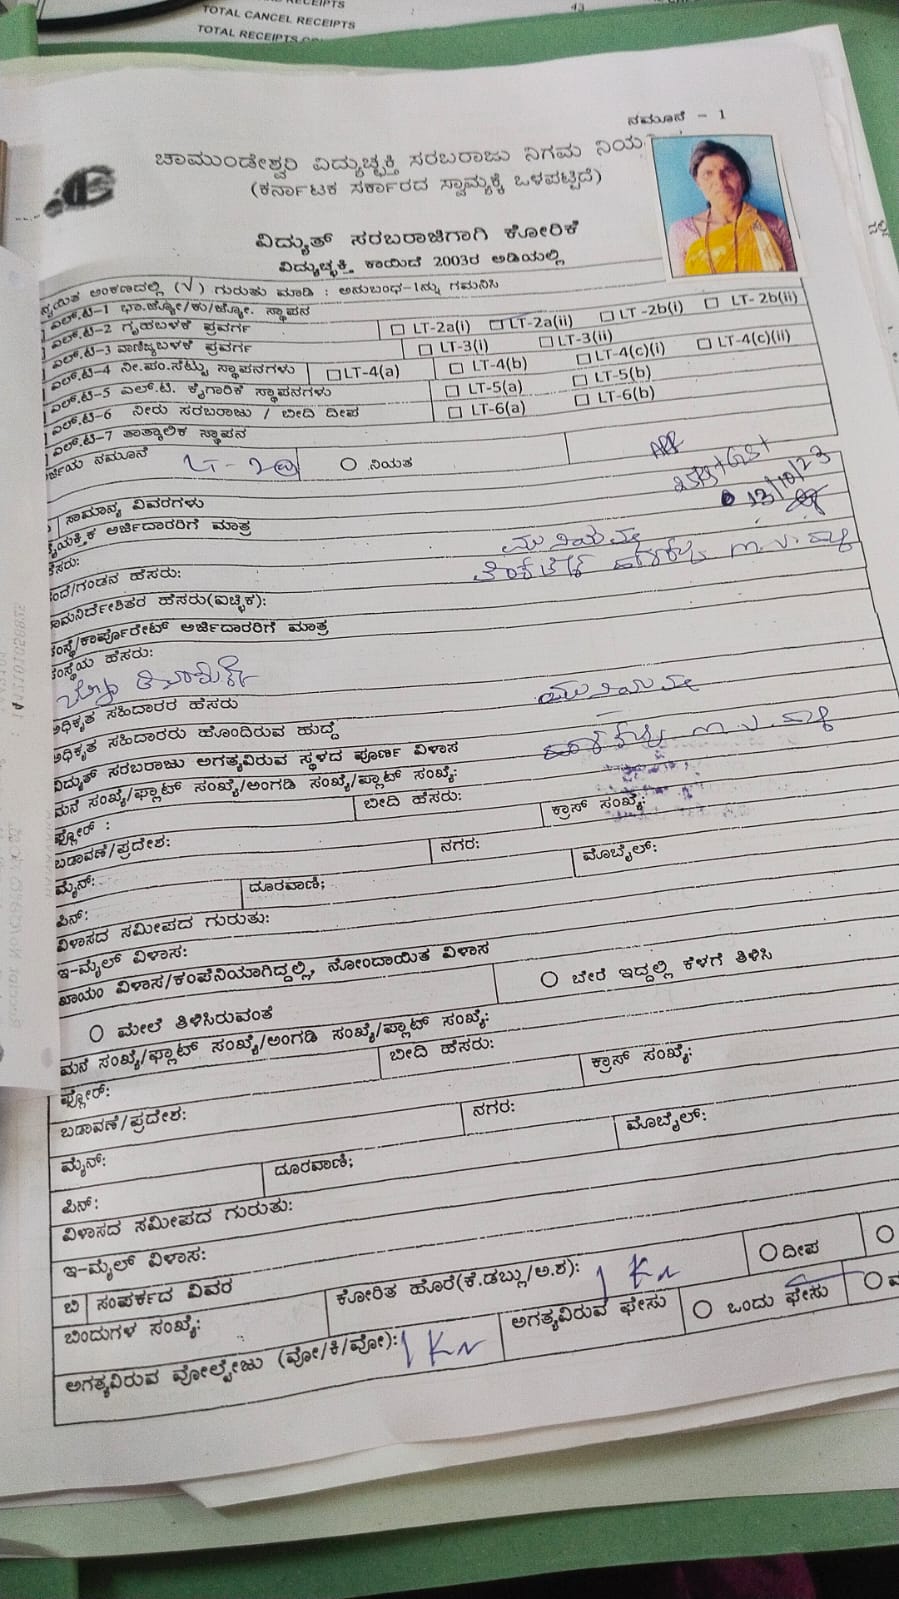 TOTAL CANCEL RECEIPTS
TOTAL RECEIPTS
ನಮೂನೆ - 1
ಚಾಮುಂಡೇಶ್ವರಿ ವಿದ್ಯುಚ್ಛಕ್ತಿ ಸರಬರಾಜು ನಿಗಮ ನಿಯ
(ಕರ್ನಾಟಕ ಸರ್ಕಾರದ ಸ್ವಾಮ್ಯಕ್ಕೆ ಒಳಪಟ್ಟಿದೆ)
ವಿದ್ಯುತ್ ಸರಬರಾಜಿಗಾಗಿ ಕೋರಿಕೆ
ವಿದ್ಯುಚ್ಛಕ್ತಿ ಕಾಯಿದೆ 2003ರ ಅಡಿಯಲ್ಲಿ
ಅಂಕಣದಲ್ಲಿ (√) ಗುರುತು ಮಾಡಿ : ಅನುಬಂಧ-1ನ್ನು ಗಮನಿಸಿ
ಎಲ್.ಟಿ-1 ಭಾ.ಜ್ಯೋ/ಕು/ಜ್ಯೋ. ಸ್ಥಾಪನ
ಎಲ್.ಟಿ-2 ಗೃಹಬಳಕೆ ಪ್ರವರ್ಗ □ LT-2a(i) □ LT-2a(ii) □ LT-2b(i) □ LT-2b(ii)
ಎಲ್.ಟಿ-3 ವಾಣಿಜ್ಯಬಳಕೆ ಪ್ರವರ್ಗ □ LT-3(i) □ LT-3(ii)
ಎಲ್.ಟಿ-4 ನೀ.ಪಂ.ಸೆಟ್ಟು ಸ್ಥಾಪನಗಳು □ LT-4(a) □ LT-4(b) □ LT-4(c)(i) □ LT-4(c)(ii)
ಎಲ್.ಟಿ-5 ಎಲ್.ಟಿ. ಕೈಗಾರಿಕೆ ಸ್ಥಾಪನಗಳು □ LT-5(a) □ LT-5(b)
ಎಲ್.ಟಿ-6 ನೀರು ಸರಬರಾಜು / ಬೀದಿ ದೀಪ □ LT-6(a) □ LT-6(b)
ಎಲ್.ಟಿ-7 ತಾತ್ಕಾಲಿಕ ಸ್ಥಾಪನ
ನಮೂನೆ ○ ನಿಯತ
13/10/23
ಸಾಮಾನ್ಯ ವಿವರಗಳು
ಅರ್ಜಿದಾರರಿಗೆ ಮಾತ್ರ
ಮುನಿಯಮ್ಮ
ಹೆಸರು:
/ಗಂಡನ ಹೆಸರು:
ಹೆಸರು(ಐಚ್ಛಿಕ):
/ಕಾರ್ಪೊರೇಟ್ ಅರ್ಜಿದಾರರಿಗೆ ಮಾತ್ರ
ಸಂಸ್ಥೆಯ ಹೆಸರು:
ಅಧಿಕೃತ ಸಹಿದಾರರ ಹೆಸರು ಮುನಿಯಮ್ಮ
ಅಧಿಕೃತ ಸಹಿದಾರರು ಹೊಂದಿರುವ ಹುದ್ದೆ
ವಿದ್ಯುತ್ ಸರಬರಾಜು ಅಗತ್ಯವಿರುವ ಸ್ಥಳದ ಪೂರ್ಣ ವಿಳಾಸ
ಮನೆ ಸಂಖ್ಯೆ/ಫ್ಲಾಟ್ ಸಂಖ್ಯೆ/ಅಂಗಡಿ ಸಂಖ್ಯೆ/ಪ್ಲಾಟ್ ಸಂಖ್ಯೆ:
ಫ್ಲೋರ್ : ಬೀದಿ ಹೆಸರು: ಕ್ರಾಸ್ ಸಂಖ್ಯೆ:
ಬಡಾವಣೆ/ಪ್ರದೇಶ: ನಗರ:
ಮೈನ್: ಮೊಬೈಲ್:
ಪಿನ್: ದೂರವಾಣಿ;
ವಿಳಾಸದ ಸಮೀಪದ ಗುರುತು:
ಇ-ಮೈಲ್ ವಿಳಾಸ:
ಖಾಯಂ ವಿಳಾಸ/ಕಂಪೆನಿಯಾಗಿದ್ದಲ್ಲಿ, ನೋಂದಾಯಿತ ವಿಳಾಸ
○ ಮೇಲೆ ತಿಳಿಸಿರುವಂತೆ ○ ಬೇರೆ ಇದ್ದಲ್ಲಿ ಕೆಳಗೆ ತಿಳಿಸಿ
ಮನೆ ಸಂಖ್ಯೆ/ಫ್ಲಾಟ್ ಸಂಖ್ಯೆ/ಅಂಗಡಿ ಸಂಖ್ಯೆ/ಪ್ಲಾಟ್ ಸಂಖ್ಯೆ:
ಫ್ಲೋರ್: ಬೀದಿ ಹೆಸರು: ಕ್ರಾಸ್ ಸಂಖ್ಯೆ:
ಬಡಾವಣೆ/ಪ್ರದೇಶ: ನಗರ:
ಮೈನ್: ಮೊಬೈಲ್:
ಪಿನ್: ದೂರವಾಣಿ;
ವಿಳಾಸದ ಸಮೀಪದ ಗುರುತು:
ಇ-ಮೈಲ್ ವಿಳಾಸ:
ಬಿ ಸಂಪರ್ಕದ ವಿವರ
ಬಿಂದುಗಳ ಸಂಖ್ಯೆ: ಕೋರಿತ ಹೊರೆ(ಕೆ.ಡಬ್ಲು/ಅ.ಶ): 1 Kw ○ ದೀಪ
ಅಗತ್ಯವಿರುವ ವೋಲ್ಟೇಜು (ವೋ/ಕಿ/ವೋ): 1 Kw ಅಗತ್ಯವಿರುವ ಫೇಸು ○ ಒಂದು ಫೇಸು